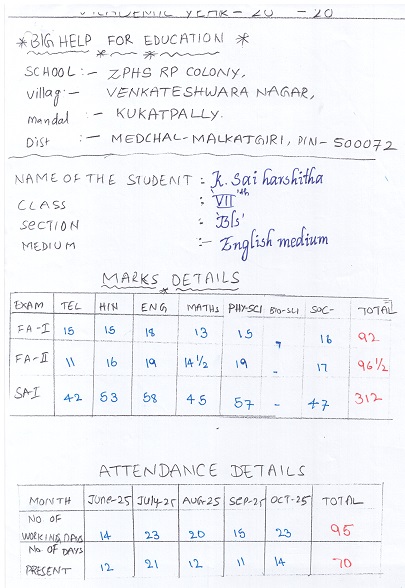 ACADEMIC YEAR - 20 - 20
* BIG HELP FOR EDUCATION *
SCHOOL :- ZPHS RP COLONY,
Villag :- VENKATESHWARA NAGAR,
Mandal :- KUKATPALLY.
Dist :- MEDCHAL-MALKATGIRI, PIN- 500072
NAME OF THE STUDENT : K. Sai harshitha
CLASS : VII th
SECTION : 'Bls'
MEDIUM :- English medium
MARKS DETAILS
EXAM TEL HIN ENG MATHS PHY-SCI BIO-SCI SOC- TOTAL
FA-I 15 15 18 13 15 - 16 92
FA-II 11 16 19 14 1/2 19 - 17 96 1/2
SA I 42 53 58 45 57 - 47 312
ATTENDANCE DETAILS
MONTH June-25 July-25 AUG-25 SEP-25 OCT-25 TOTAL
NO OF
WORKING DAYS 14 23 20 15 23 95
NO. OF DAYS
PRESENT 12 21 12 11 14 70